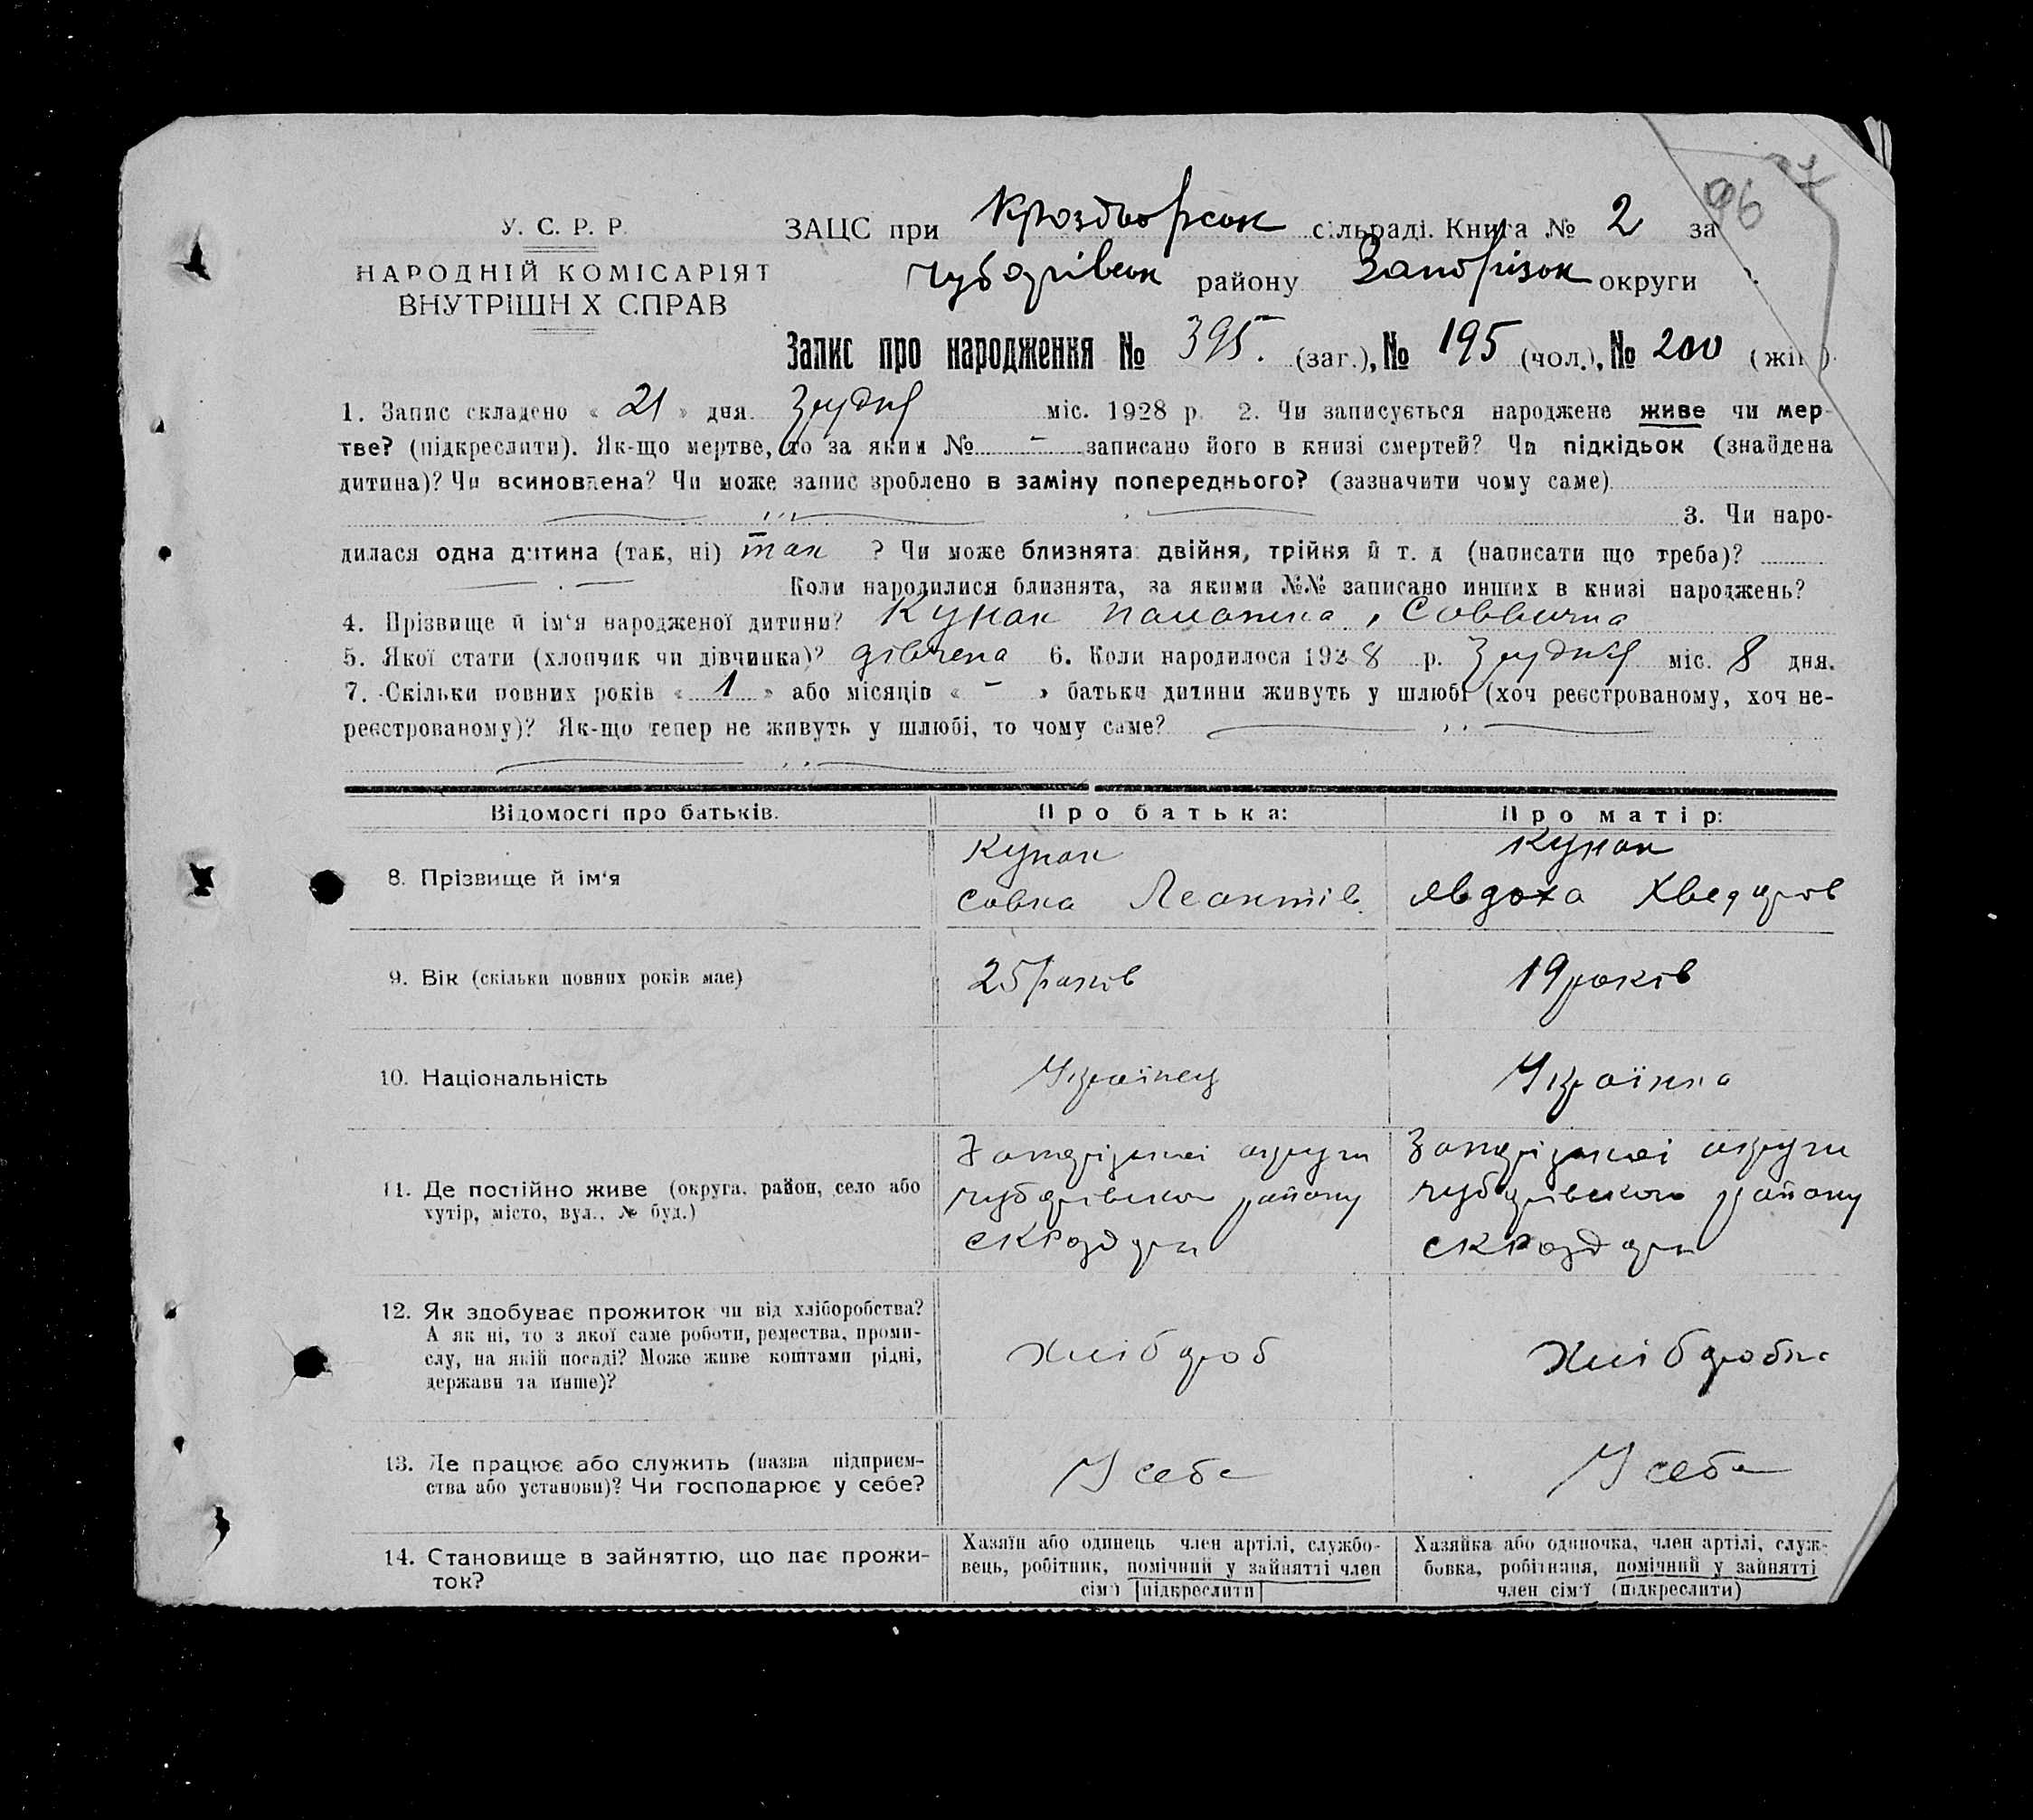 96
У. С. Р. Р.
НАРОДНІЙ КОМІСАРІЯТ
ВНУТРІШН Х СПРАВ
ЗАЦС при Кроздворсон сільраді. Книга № 2 за
Чубарівсн району Запорізон округи
Запис про народження № 395. (заг.), № 195 (чол.), № 200 (жін.)
1. Запис складено « 21 » дня Грудня міс. 1928 р. 2. Чи записується народжене живе чи мер-
тве? (підкреслити). Як-що мертве, то за яким № – записано його в книзі смертей? Чи підкідьок (знайдена
дитина)? Чи всиновлена? Чи може запис зроблено в заміну попереднього? (зазначити чому саме)
3. Чи наро-
дилася одна дитина (так, ні) так ? Чи може близнята: двійня, трійня й т. д (написати що треба)?
Коли народилися близнята, за якими №№ записано инших в книзі народжень?
4. Прізвище й ім'я народженої дитини? Кунак Саввична
5. Якої стати (хлопчик чи дівчинка)? дівчена 6. Коли народилося 1928 р. Грудня міс. 8 дня.
7. Скільки повних років « 1 » або місяців « – » батьки дитини живуть у шлюбі (хоч реєстрованому, хоч не-
реєстрованому)? Як-що тепер не живуть у шлюбі, то чому саме?
Відомості про батьків. Про батька: Про матір:
8. Прізвище й ім'я
Кунак
Савка Леонтів.
Кунак
Явдоха Хведоров
9. Вік (скільки повних років має) 25 років 19 років
10. Національність Українец Українка
11. Де постійно живе (округа, район, село або
хутір, місто, вул., № буд.)
Запорізькоі округи
Чубарівского району
Запорізькоі округи
Чубарівского району
12. Як здобуває прожиток чи від хліборобства?
А як ні, то з якої саме роботи, ремества, проми-
слу, на якій посаді? Може живе коштами рідні,
держави та инше)?
Хлібороб
Хліборобка
13. Де працює або служить (назва підприєм-
ства або установи)? Чи господарює у себе?
У себе
У себе
14. Становище в зайняттю, що дає прожи-
ток?
Хазяїн або одинець член артілі, службо-
вець, робітник, помічний у зайнятті член
сім'ї [підкреслити]
Хазяйка або одиночка, член артілі, служ-
бовка, робітниця, помічний у зайнятті
член сім'ї (підкреслити)